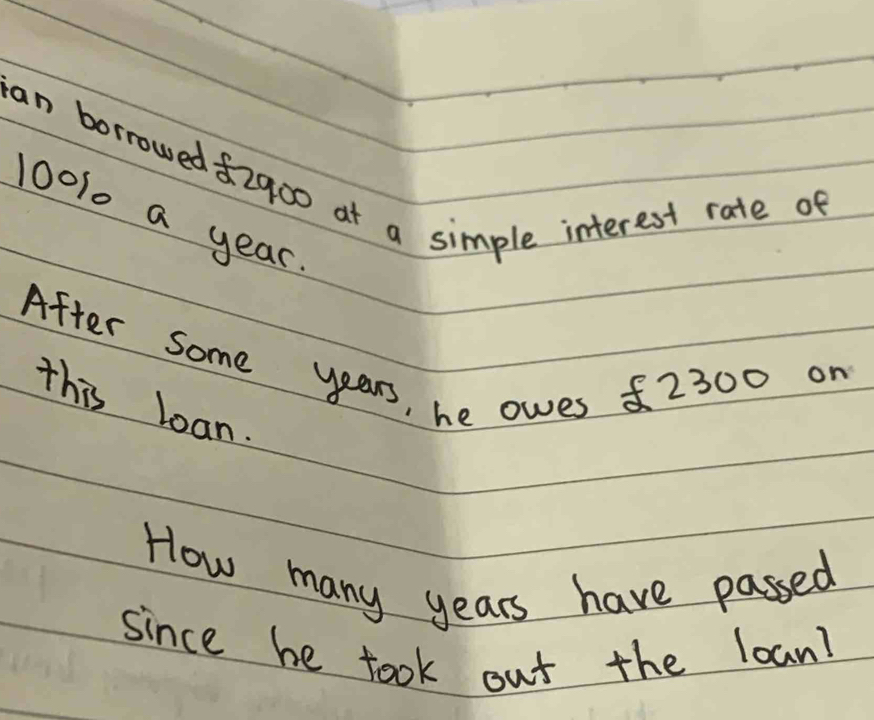 ian borrowed £2900 at a simple interest rate of
10% a year.
After some years, he owes £2300 on
this loan.
How many years have passed
since he took out the loan?